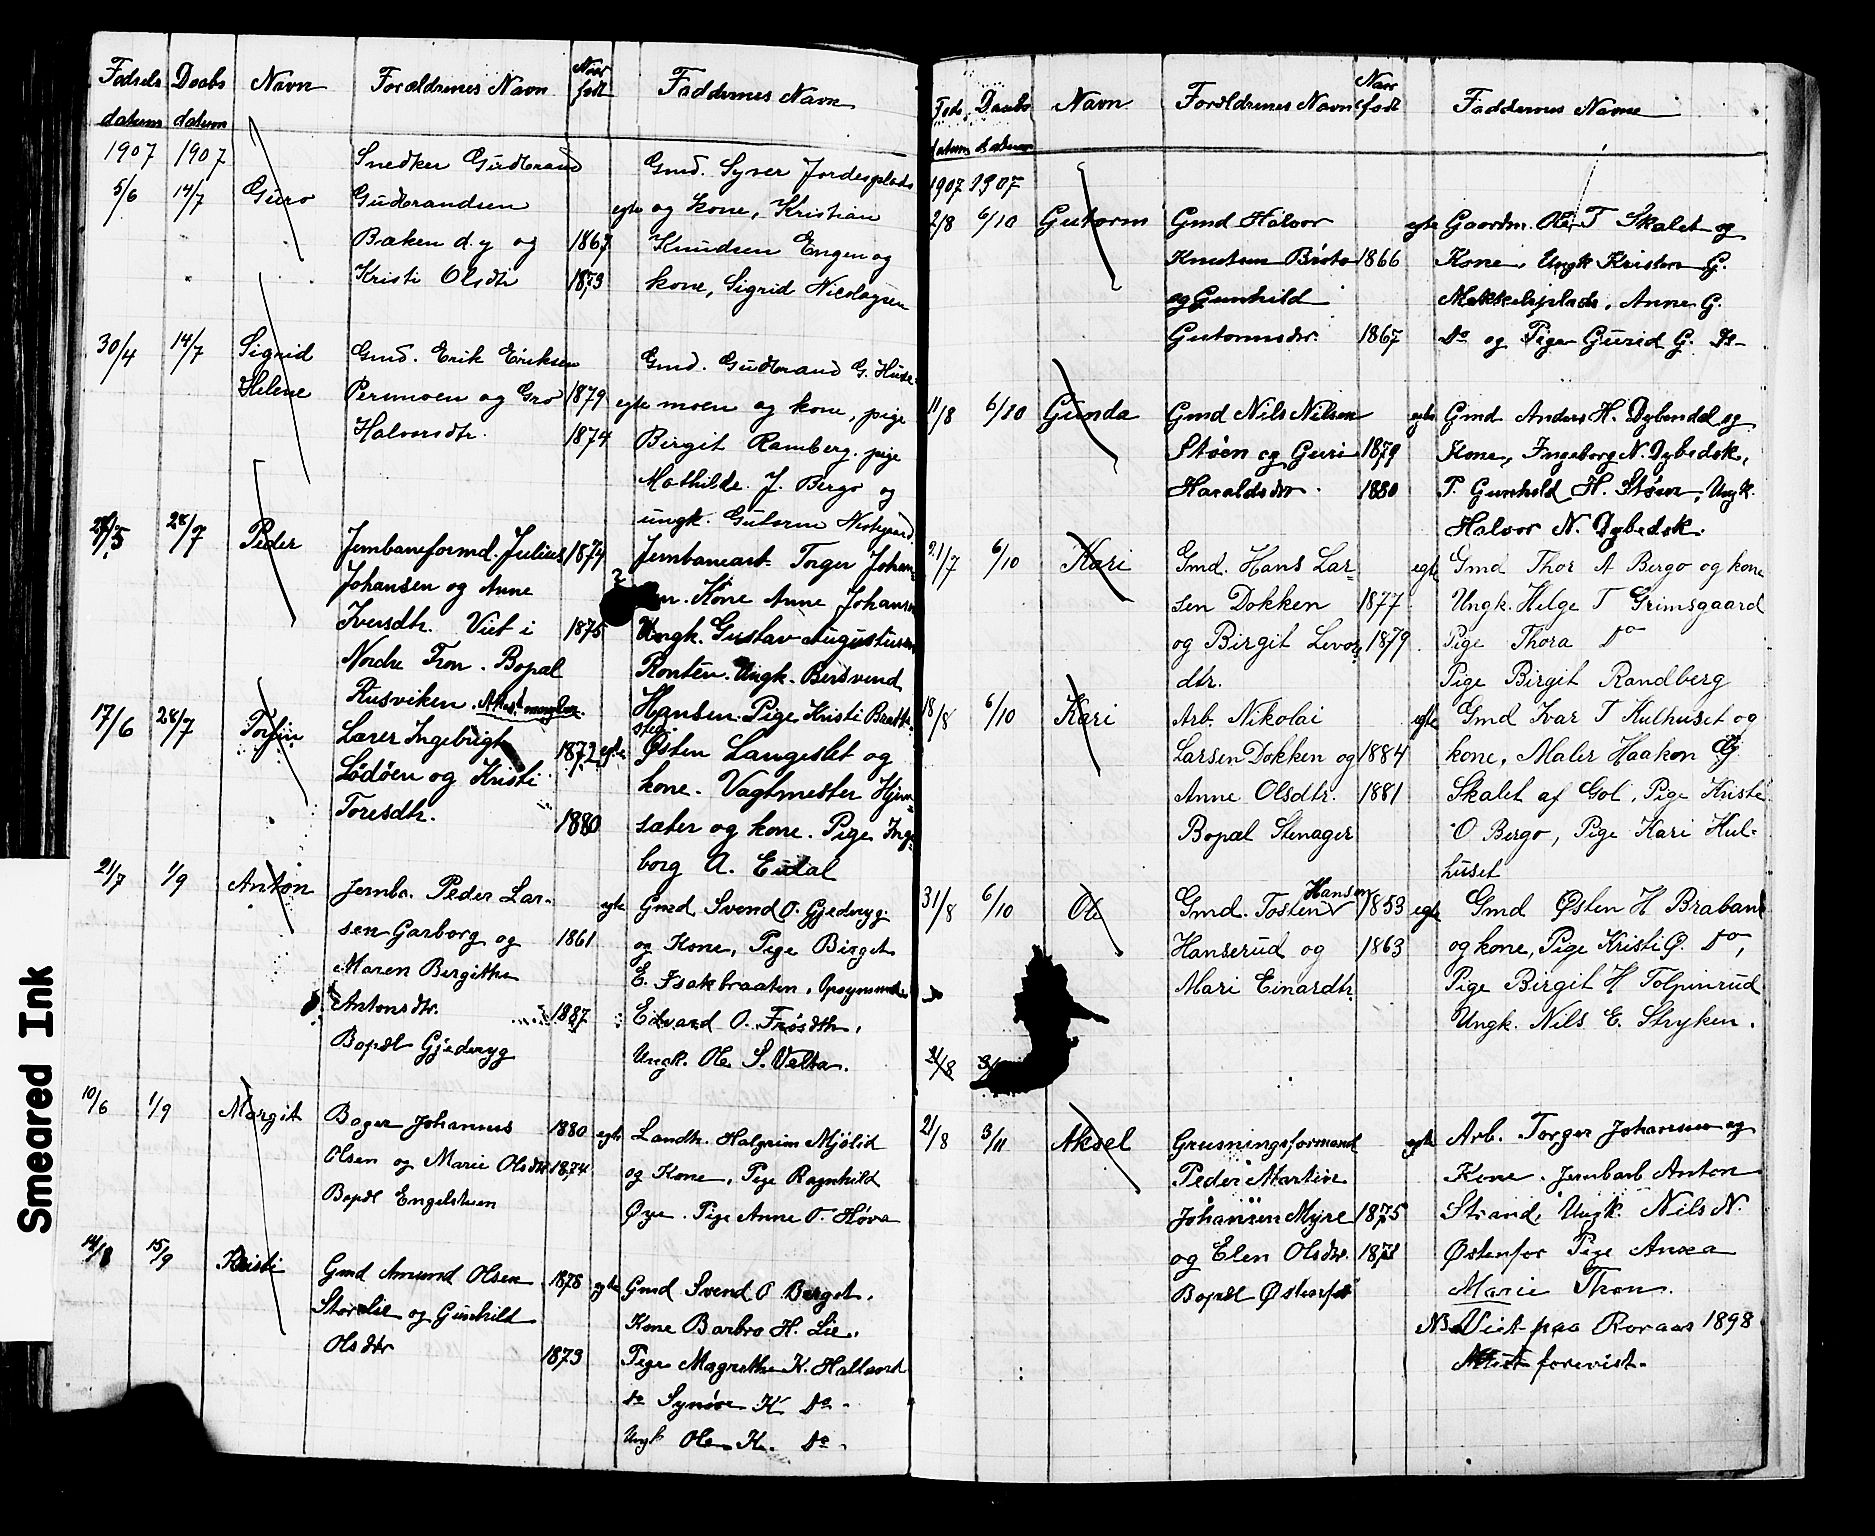 Smeared Ink
Fødsels datum Daabs datum Navn Forældrenes Navn Naar født Faddernes Navn
1907 1907 Snedker Gudbrand Gmd. Syver Jordesplads
5/6 14/7 Guro Gudbrandsen egte og kone, Kristian
Bæken d.y og 1867 Knudsen Engen og
Kristi Olsdtr 1873 kone, Sigrid Nicolaysen
30/4 14/7 Sigrid Gmd. Erik Eriksen Gmd. Gudbrand G. Huse-
Helene Perumoen og Gro 1879 egte moen og kone, pige
Halvorsdtr. 1874 Birgit Ramberg. pige
Mathilde J. Bergo og
ungk. Gutorm
28/7 Peder Jernbaneformd. Julius 1874 Jernbanearb. Torger Johan-
Johansen og Anne Kone Anne Johansen
Iversdtr. Viet i 1875 Ungk. Gustav Augustusen
Nordre Fron. Bopæl Ronten. Ungk. Bersvend
Rusviken. Attest mangler. Hansen. Pige Kristi Bratt-
17/6 28/7 Torfin Lærer Ingebrigt 1872 egte Østen Langeslet og
Lødøen og Kristi kone. Vagtmester Hjem-
Toresdtr. 1880 sæter og kone. Pige Inge-
borg A. Eidal
21/7 1/9 Anton Jernba. Peder Lar- egte Gmd. Svend O. Gjederyg
sen Garborg og 1861 og Kone, Pige Birget
Maren Bergithe E. Isakbraaten,
Antonsdtr. 1887 Edvard O. Frøsdth,
Bopæl Gjederyg Ungk. Ole S. Velta.
10/6 1/9 Margit Bager Johannes 1880 egte Landh. Halgrim Mjølid
Olsen og Marie Olsdtr 1874 og Kone, Pige Ragnhild
Bopæl Engelsteen Øye. Pige Anne O. Hova
14/8 15/9 Kristi Gmd Amund Olsen 1878 egte Gmd Svend O Berget,
Storelie og Gunhild Kone Barbro H. Lie,
Olsdtr 1873 Pige Magrethe K. Hallaord
do Synöve K do -
Ungk Ole K. do -
Føds. datum Daabs datum Navn Forældrenes Navn Naar født Faddernes Navne
1907 1907
2/8 6/10 Gutorm Gmd Halvor egte Gaardm. Ole T Skalet og
Knutsen Bröto 1866 Kone, Ungk Kristen G.
og Gunhild Mekkelsplads, Anne G.
Gutormsdtr. 1867 do og Pige Gurid G. do -
11/8 6/10 Gunda Gmd Nils Nilsen egte Gmd Anders H. Dybendal og
Støen og Guri 1879 Kone, Ingeborg N. Dybedsk,
Haraldsdtr. 1880 P. Gunhild H. Støen, Ungk.
Halvor N. Dybedsk.
21/7 6/10 Kari Gmd. Hans Lar- egte Gmd Thor A Bergo og kone
sen Dokken 1877 Ungk. Helge T Grimsgaard
og Birgit Levors 1879 Pige Thora do
dtr. Pige Birgit Randberg
18/8 6/10 Kari Arb. Nikolai egte Gmd Ivar T Hulhuset og
Larsen Dokken og 1884 kone, Maler Haakon
Anne Olsdtr. 1881 Skalet af Gol, Pige Kristi
Bopæl Stenager O Bergo, Pige Kari Hul-
huset
31/8 6/10 Ole Gmd. Tosten Hansen 1853 egte Gmd Østen H Braband
Hanserud og 1863 og kone, Pige Kristi Ø. do,
Mari Einardtr. Pige Birgit H Tolpinrud
Ungk. Nils E. Stryken.
21/8
21/8 3/11 Aksel Grusningsformand egte Arb. Torger Johansen og
Peder Martin Kone. Jernbarb Anton
Johansen Myre 1875 Strand, Ungk. Nils N.
og Elen Olsdtr. 1871 Østenfor Pige Anna
Bopæl Østenfor Marie Thron.
NB Viet paa Roraas 1898
Attest forevist.